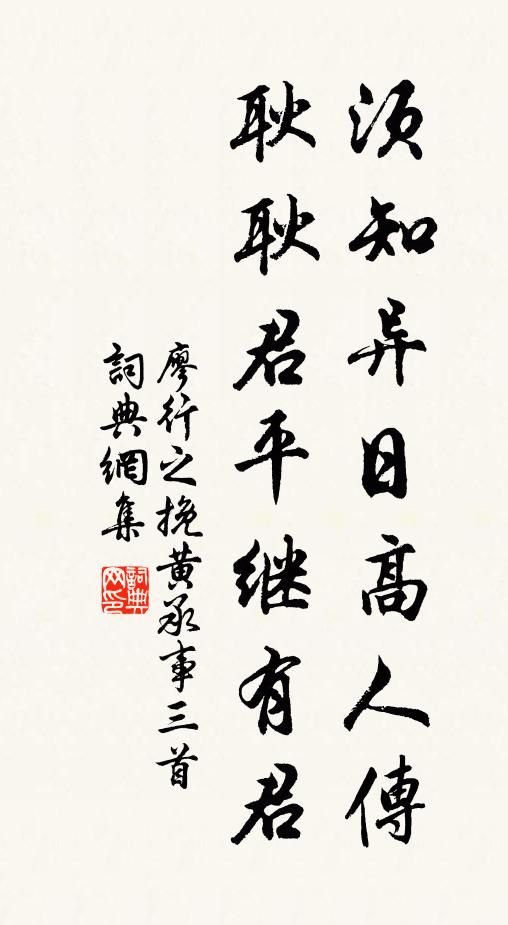 须知异日高人傳
耿耿君平继有君
廖行之挽黄承事三首
詞典網集
詞典
网印